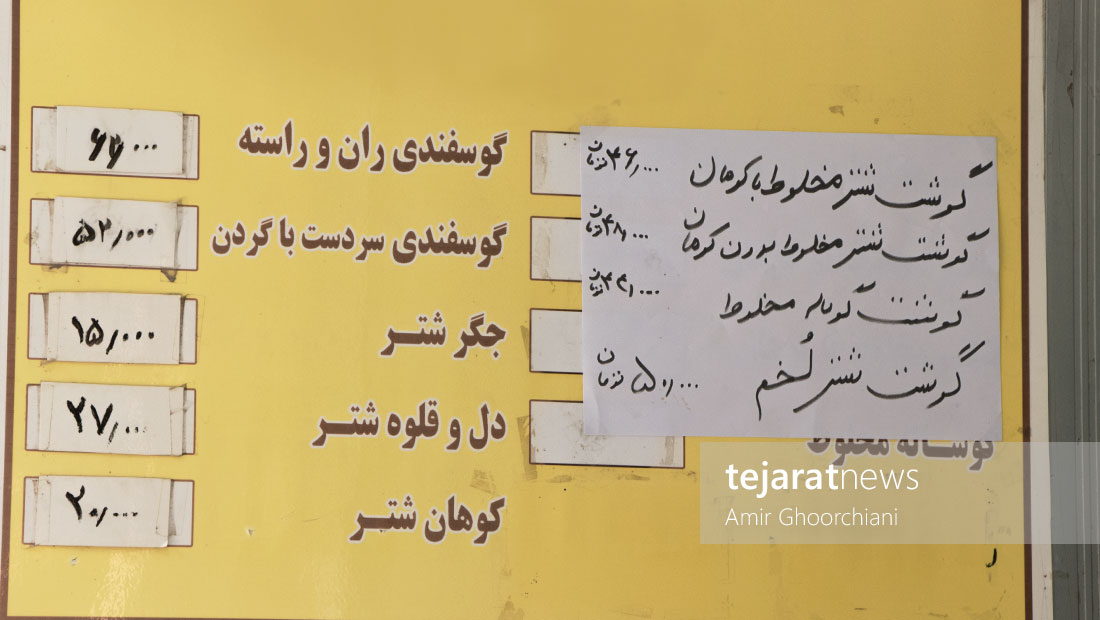 گوشت شتر مخلوط با کوهان ۴۶,۰۰۰ تومان
گوشت شتر مخلوط بدون کوهان ۴۸,۰۰۰ تومان
گوشت گوساله مخلوط ۴۴,۰۰۰ تومان
گوشت شتر لُخم ۵۰,۰۰۰ تومان
گوساله مخلوط
گوسفندی ران و راسته ۶۶,۰۰۰
گوسفندی سردست با گردن ۵۲,۰۰۰
جگر شتر ۱۵,۰۰۰
دل و قلوه شتر ۲۷,۰۰۰
کوهان شتر ۲۰,۰۰۰
tejaratnews
Amir Ghoorchiani